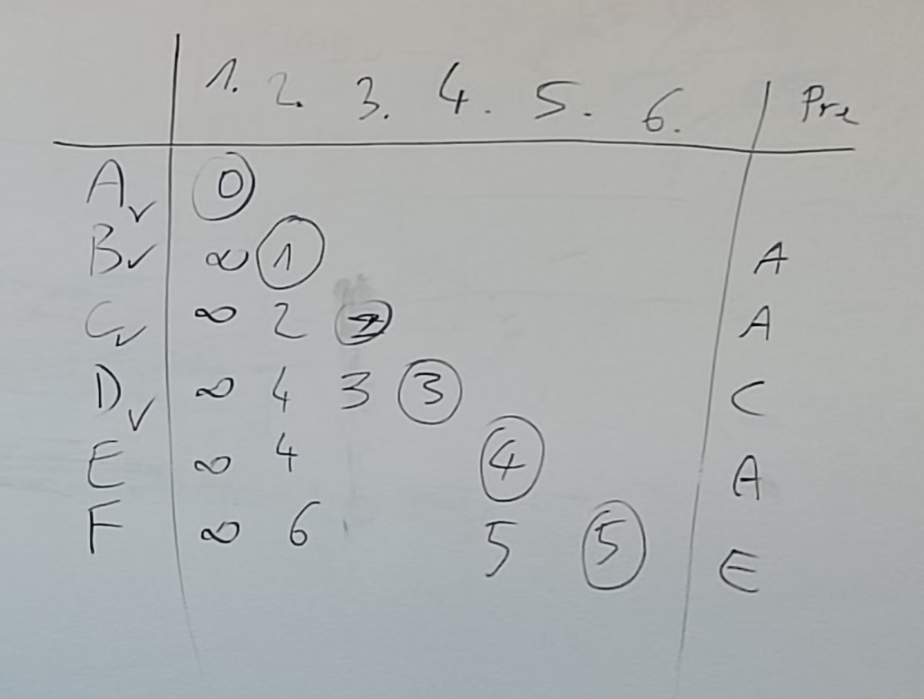 1. 2. 3. 4. 5. 6. Pre
A✓ 0
B✓ ∞ 1 A
C✓ ∞ 2 A
D✓ ∞ 4 3 3 C
E ∞ 4 4 A
F ∞ 6 5 5 E